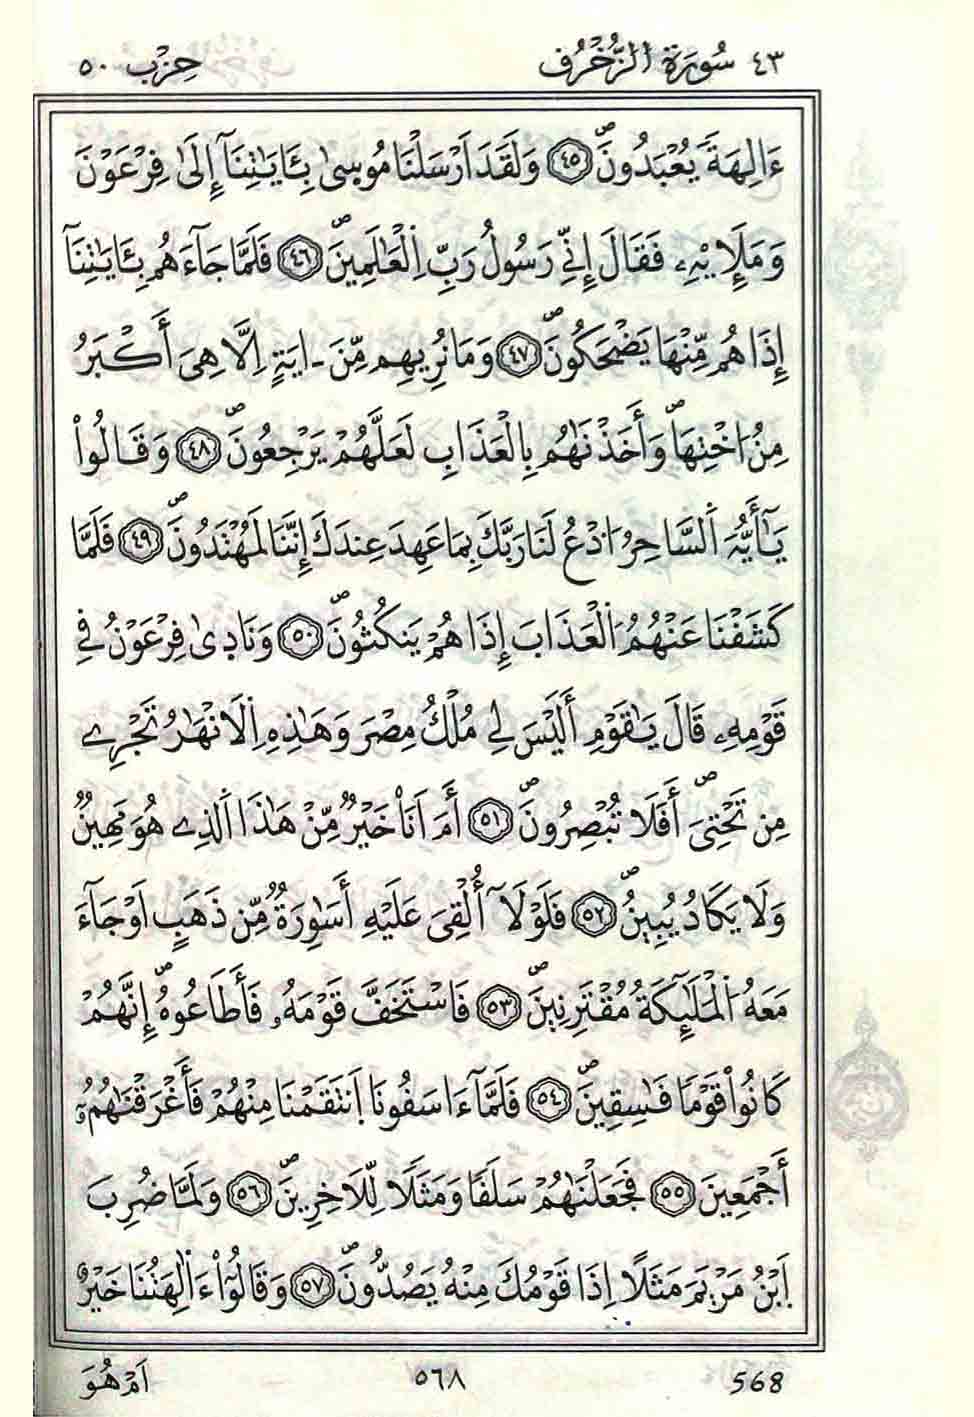 ٤٣ سُورَةُ الزُّخْرُفِ حِزْب ٥٠
ءَالِهَةً يُعْبَدُونَۖ ٤٥ وَلَقَدَ اَرْسَلْنَا مُوسىٰ بِـَٔايَٰتِنَآ إِلَىٰ فِرْعَوْنَ
وَمَلَإِيْهِۦ فَقَالَ إِنِّے رَسُولُ رَبِّ اِ۬لْعَٰلَمِينَۖ ٤٦ فَلَمَّا جَآءَهُم بِـَٔايَٰتِنَآ
إِذَا هُم مِّنْهَا يَضْحَكُونَۖ ٤٧ وَمَا نُرِيهِم مِّنَ اٰيَةٍ اِلَّا هِىَ أَكْبَرُ
مِنُ اخْتِهَاۖ وَأَخَذْنَٰهُم بِالْعَذَابِ لَعَلَّهُمْ يَرْجِعُونَۖ ٤٨ وَقَالُواْ
يَٰٓأَيُّهَ اَ۬لسَّاحِرُ ادْعُ لَنَا رَبَّكَ بِمَا عَهِدَ عِندَكَ إِنَّنَا لَمُهْتَدُونَۖ ٤٩ فَلَمَّا
كَشَفْنَا عَنْهُمُ اُ۬لْعَذَابَ إِذَا هُمْ يَنكُثُونَۖ ٥٠ وَنَادىٰ فِرْعَوْنُ فِے
قَوْمِهِۦ قَالَ يَٰقَوْمِ أَلَيْسَ لِے مُلْكُ مِصْرَ وَهَٰذِهِ اِ۬لَانْهَٰرُ تَجْرِے
مِن تَحْتِىَۖ أَفَلَا تُبْصِرُونَۖ ٥١ أَمَ اَنَا۠ خَيْرٌ مِّنْ هَٰذَا اَ۬لذِے هُوَ مَهِينٌ
وَلَا يَكَادُ يُبِينُۖ ٥٢ فَلَوْلَآ أُلْقِىَ عَلَيْهِ أَسَٰوِرَةٌ مِّن ذَهَبٍ اَوْ جَآءَ
مَعَهُ اُ۬لْمَلَٰٓئِكَةُ مُقْتَرِنِينَۖ ٥٣ فَاسْتَخَفَّ قَوْمَهُۥ فَأَطَاعُوهُۖ إِنَّهُمْ
كَانُواْ قَوْماً فَٰسِقِينَۖ ٥٤ فَلَمَّآ ءَاسَفُونَا اَ۪نتَقَمْنَا مِنْهُمْ فَأَغْرَقْنَٰهُمُۥٓ
أَجْمَعِينَ ٥٥ فَجَعَلْنَٰهُمْ سَلَفاً وَمَثَلًا لِّلَاخِرِينَۖ ٥٦ وَلَمَّا ضُرِبَ
اَ۪بْنُ مَرْيَمَ مَثَلًا اِذَا قَوْمُكَ مِنْهُ يَصُدُّونَۖ ٥٧ وَقَالُوٓاْ ءَاٰلِهَتُنَا خَيْرٌ
اَمْ هُوَ ٥٦٨ 568